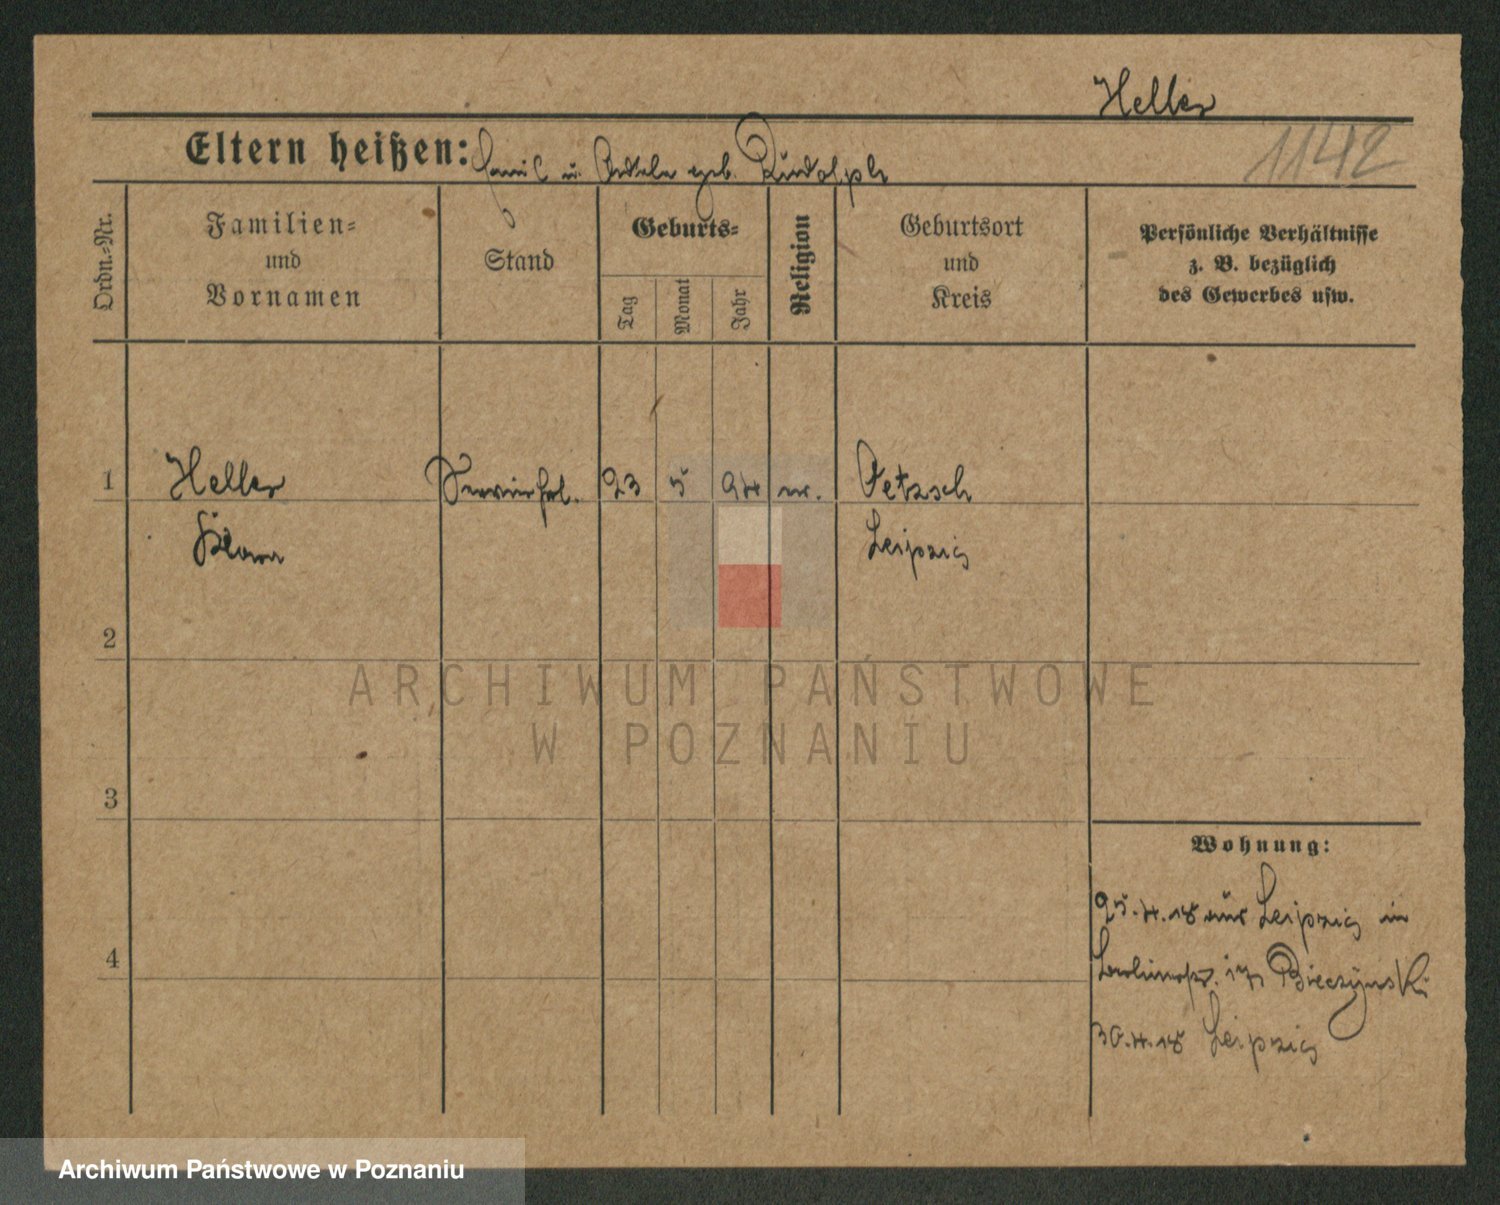 Heller
1142
Eltern heißen: Emil u. geb. Rudolph
Ordn.-Nr.
Familien-
und
Vornamen
Stand
Geburts-
Tag
Monat
Jahr
Religion
Geburtsort
und
Kreis
Persönliche Verhältnisse
z. B. bezüglich
des Gewerbes usw.
1 Heller Servierfrl. 23 5 94 ev. Oetzsch
Klara Leipzig
2
3
4
Wohnung:
25.4.18 aus Leipzig in
Berlinerstr. 17 Bieczynski
30.4.18 Leipzig
ARCHIWUM PAŃSTWOWE
W POZNANIU
Archiwum Państwowe w Poznaniu